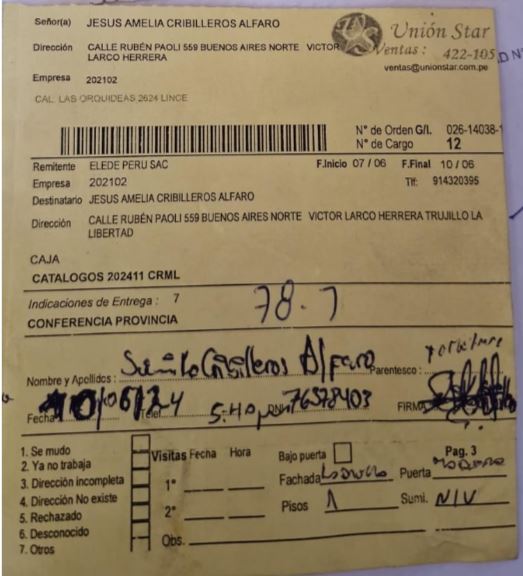 Señor(a) JESUS AMELIA CRIBILLEROS ALFARO
Unión Star
Dirección CALLE RUBÉN PAOLI 559 BUENOS AIRES NORTE VICTOR
LARCO HERRERA
Ventas: 422-105
ventas@unionstar.com.pe
Empresa 202102
CAL. LAS ORQUIDEAS 2624 LINCE
N° de Orden G/I. 026-14038-1
N° de Cargo 12
Remitente ELEDE PERU SAC F.Inicio 07 / 06 F.Final 10 / 06
Empresa 202102 Tlf: 914320395
Destinatario JESUS AMELIA CRIBILLEROS ALFARO
Dirección CALLE RUBÉN PAOLI 559 BUENOS AIRES NORTE VICTOR LARCO HERRERA TRUJILLO LA
LIBERTAD
CAJA
CATALOGOS 202411 CRML
Indicaciones de Entrega : 7
78.7
CONFERENCIA PROVINCIA
Nombre y Apellidos : Cribilleros Alfaro Parentesco :
Fecha 10/06/24 Telef. 5:40 pm DNI 76578403 FIRMA
1. Se mudo
2. Ya no trabaja
3. Dirección incompleta
4. Dirección No existe
5. Rechazado
6. Desconocido
7. Otros
Visitas Fecha Hora
1°
2°
Obs.
Bajo puerta Pag. 3
Fachada Ladrillo Puerta
Pisos 1 Sumi. N/V